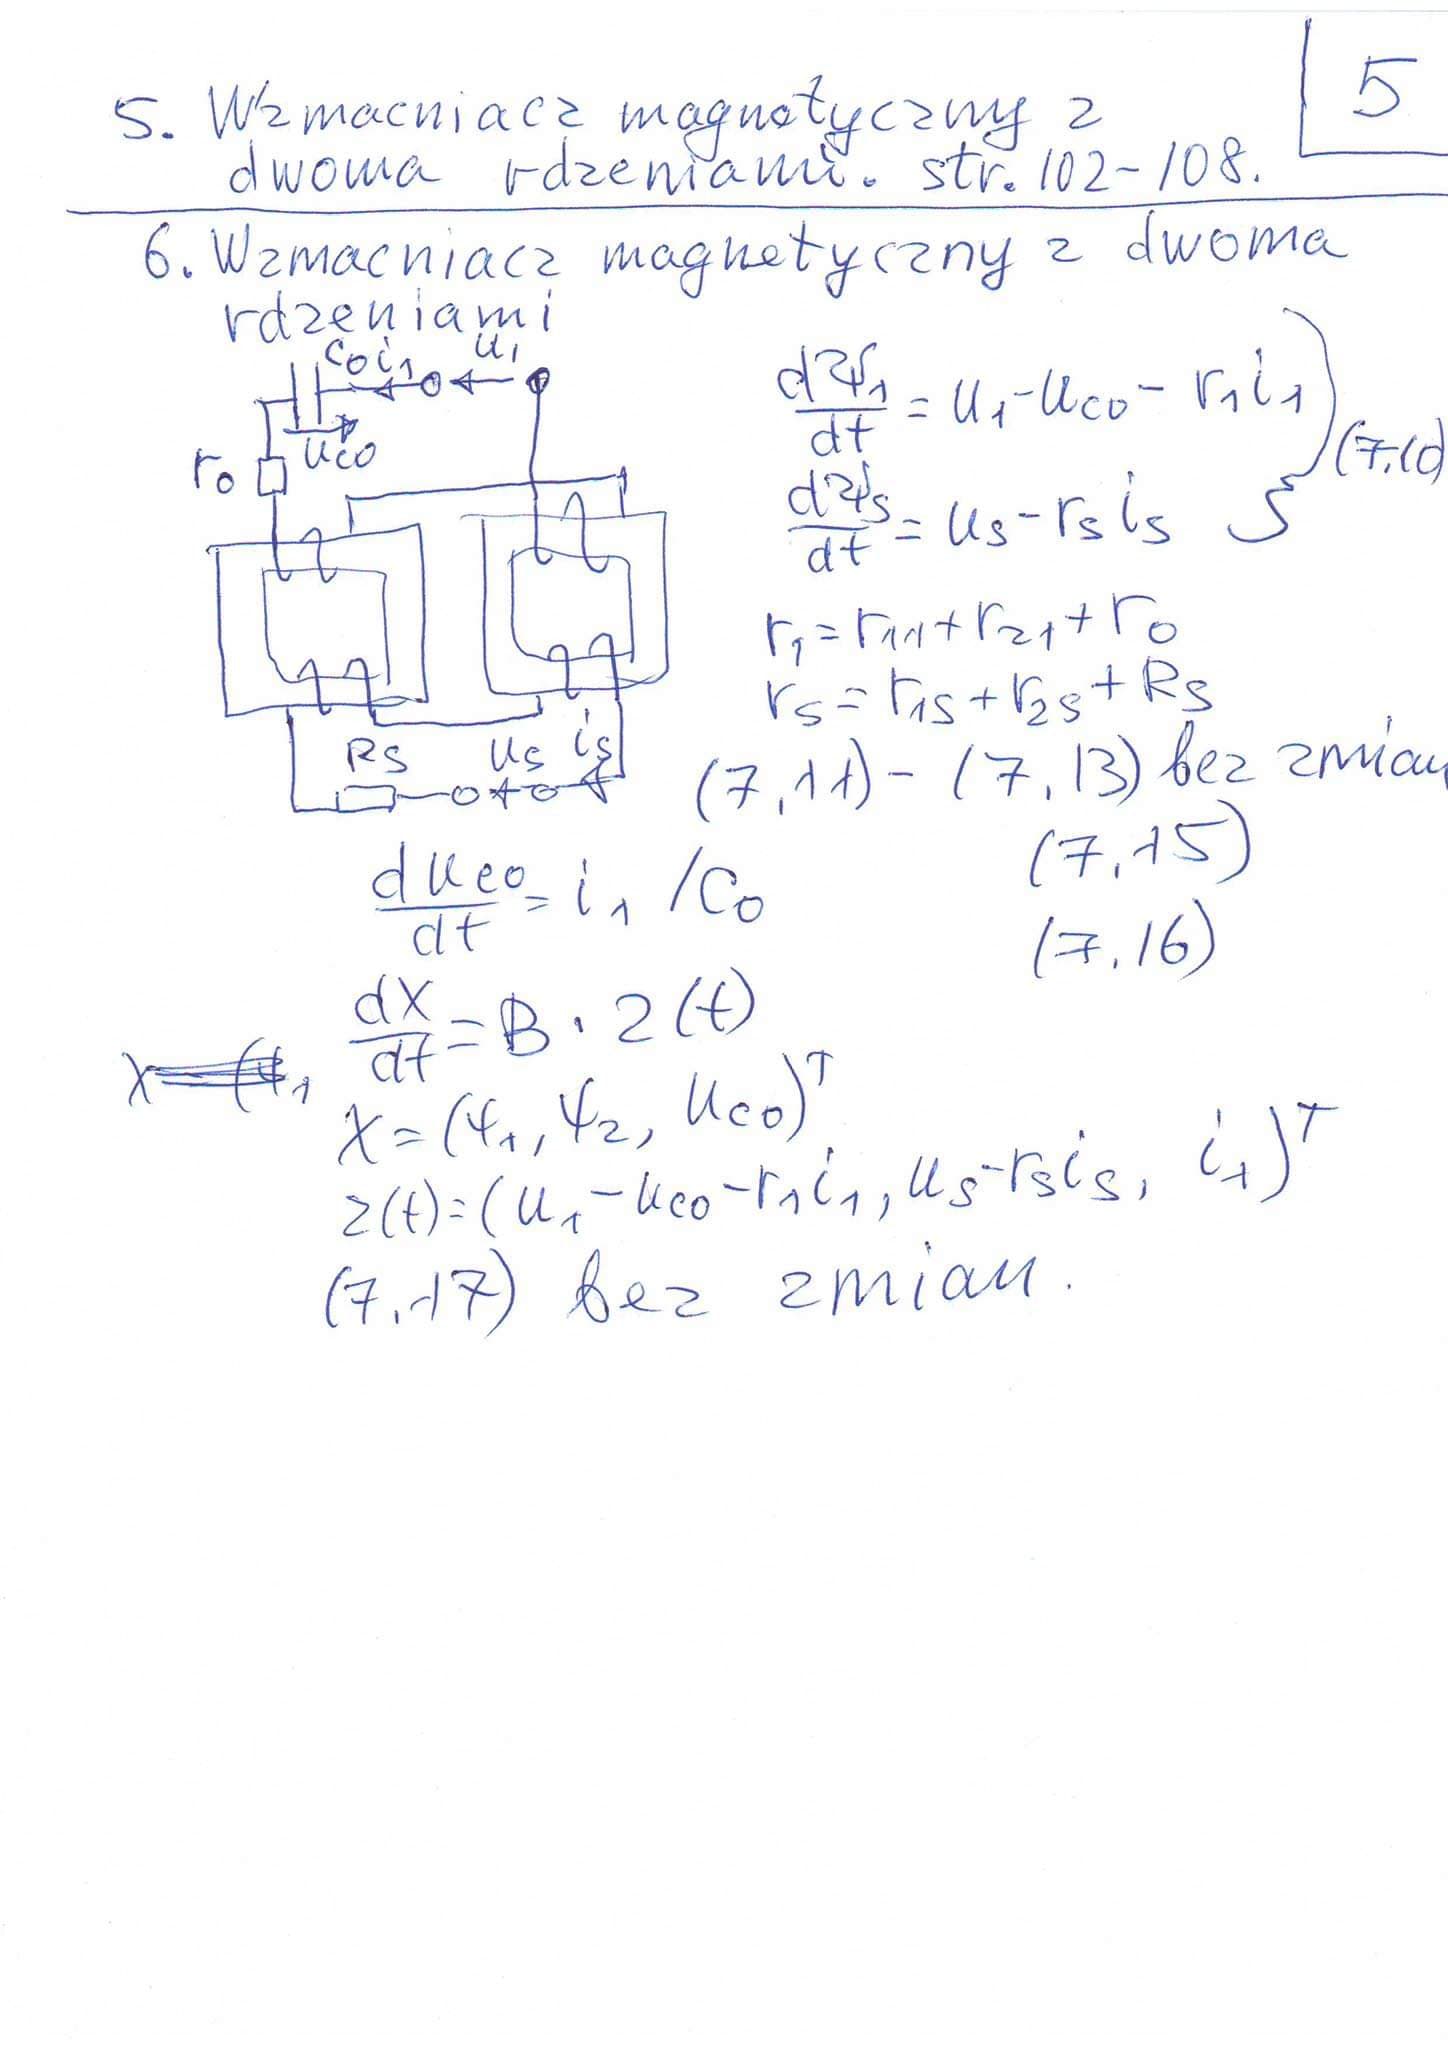 5
5. Wzmacniacz magnetyczny z
dwoma rdzeniami. str. 102-108.
6. Wzmacniacz magnetyczny z dwoma
rdzeniami
C0 i1 u1
uC0
r0
dΨ1/dt = u1 - uC0 - r1i1
dΨS/dt = uS - rS iS
(7.10)
r1 = r11 + r21 + r0
rS = r1S + r2S + RS
RS uS iS
(7,11) - (7,13) bez zmian
duC0/dt = i1 /C0 (7,15)
(7.16)
dX/dt = B · z(t)
X = (Ψ1
X = (Ψ1, Ψ2, uC0)T
z(t) = (u1 - uC0 - r1i1, uS - rSiS, i1)T
(7.17) bez zmian.